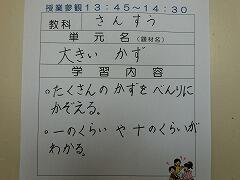 授業参観13:45～14:30
教科 さんすう
単元名(題材名)
大きい かず
学習内容
○たくさんの かずを べんりに
かぞえる。
○一のくらい や 十のくらいが
わかる。